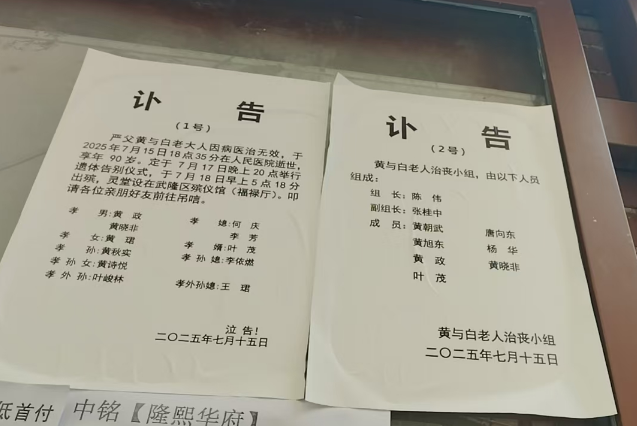 讣 告
（1号）
严父黄与白老大人因病医治无效，于
2025年7月15日18点35分在人民医院逝世，
享年 90 岁。定于 7月17日晚上 20 点举行
遗体告别仪式，于 7月18日早上 5 点 18 分
出殡，灵堂设在武隆区殡仪馆（福禄厅）。叩
请各位亲朋好友前往吊唁。
孝 男：黄 政 孝 媳：何 庆
黄晓非 李 芳
孝 女：黄 珺 孝 婿：叶 茂
孝 孙：黄秋实 孝 孙 媳：李依燃
孝 孙 女：黄诗悦
孝 外 孙：叶峻林 孝外孙媳：王 珺
泣 告！
二〇二五年七月十五日
讣 告
（2号）
黄与白老人治丧小组，由以下人员
组成：
组 长：陈 伟
副组长：张桂中
成 员：黄朝武 唐向东
黄旭东 杨 华
黄 政 黄晓非
叶 茂
黄与白老人治丧小组
二〇二五年七月十五日
低首付 中铭【隆熙华府】